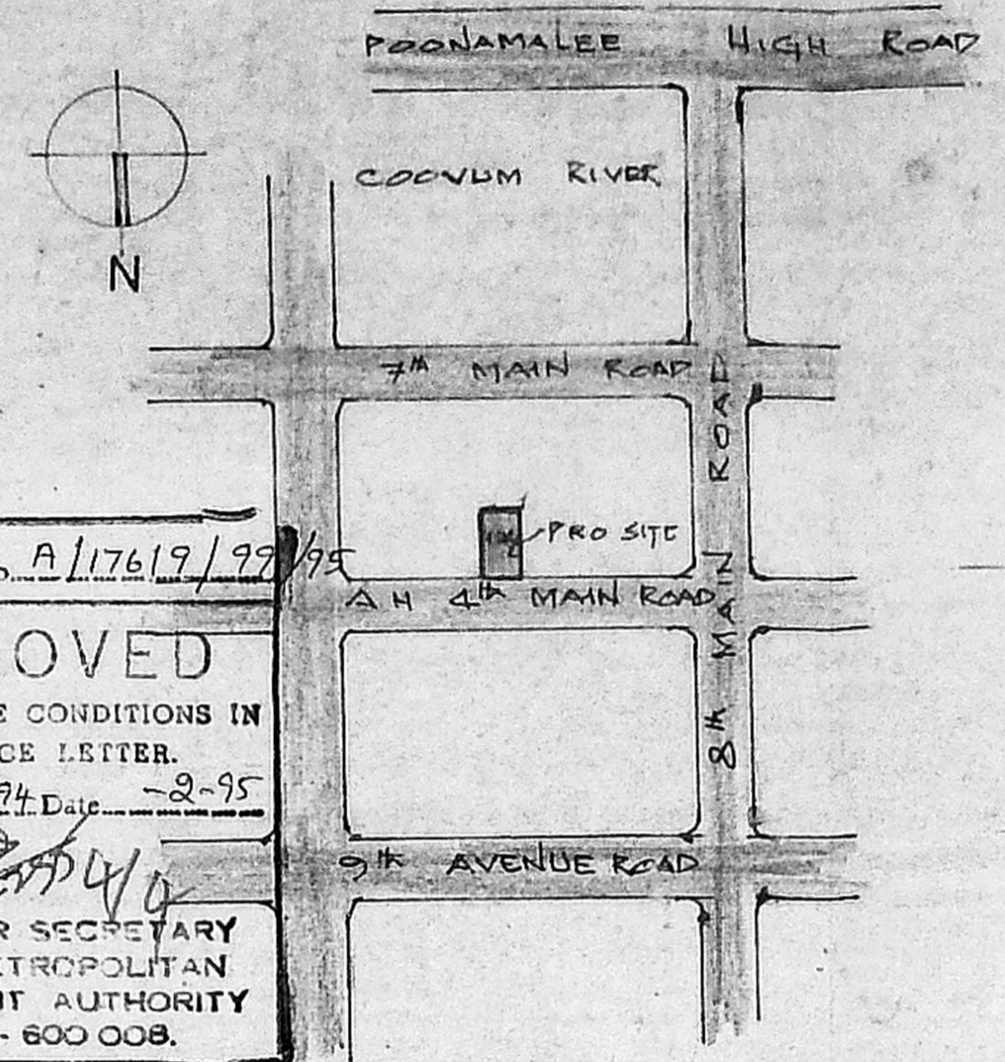 POONAMALEE HIGH ROAD
COOVUM RIVER
N
7th MAIN ROAD
PRO SITE
A/17619/99/95
AH 4th MAIN ROAD
8th MAIN ROAD
OVED
E CONDITIONS IN
CE LETTER.
94 Date -2-95
9th AVENUE ROAD
R SECRETARY
ETROPOLITAN
NT AUTHORITY
- 600 008.